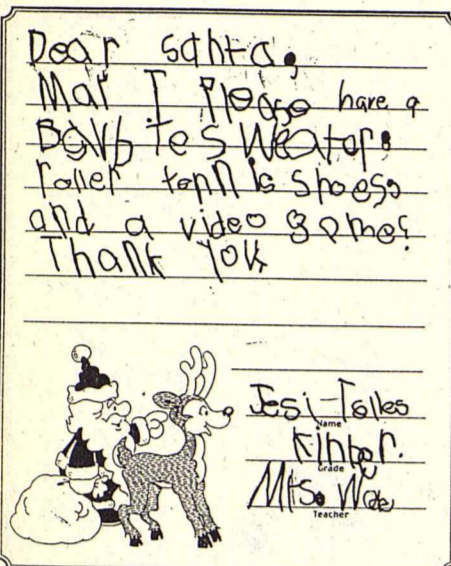 Dear Santa,
Mar I Please have a
Barbie sweater,
roller tennis shoess
and a video game?
Thank You
Jesi-Tolles
Name
Kinder.
Grade
Mrs.
Teacher